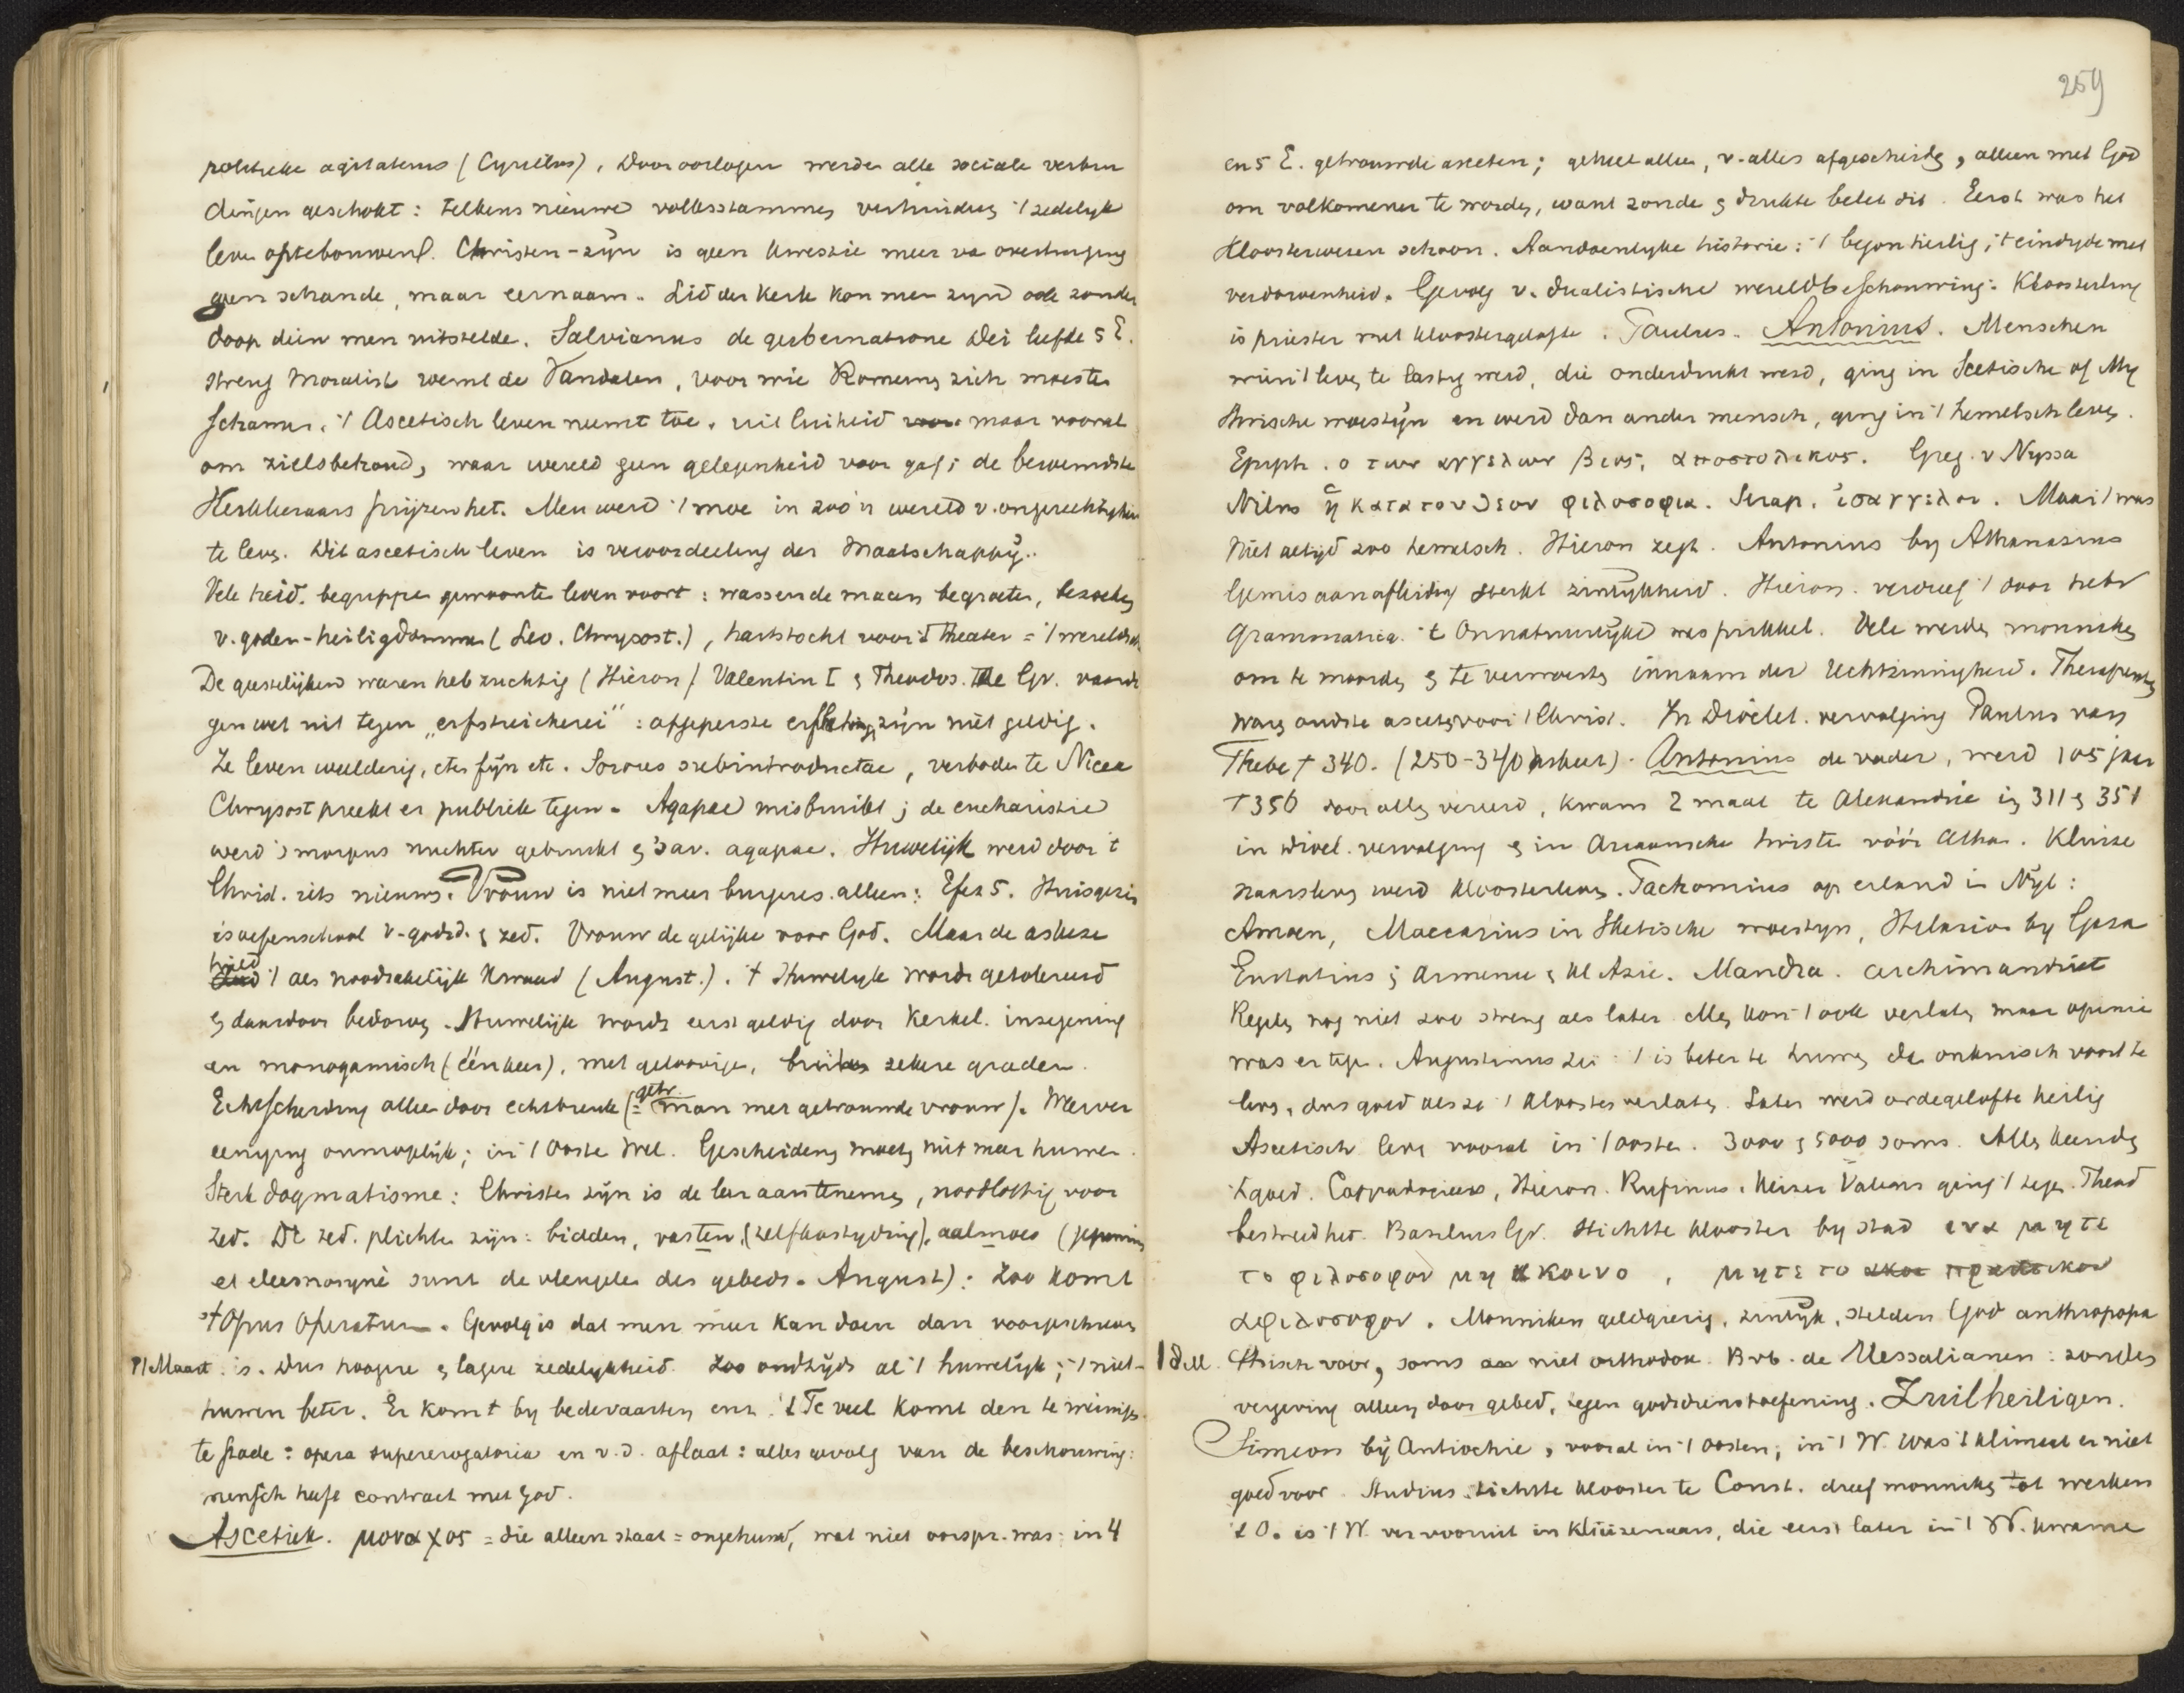 politieke agitatems (Cyrillus). Door oorlogen werden alle sociale verbin
dingen geschokt: telkens nieuwe volksstammen verhinderen 't zedelyk
leven optebouwen. Christen-zijn is geen kwestie meer va overtuiging
geen schande, maar eernaam. Lid der kerk kon men zijn ook zonder
doop dien men uitstelde. Salvianus de gubernatione Dei leefde 5 E.
streng moralist roemt de Vandalen, voor wie Romeinen zich moesten
schamen. 't Ascetisch leven neemt toe, uit luiheid maar vooral
om zielsbehoud, waar wereld geen gelegenheid voor gaf; de beroemdste
Kerkleeraars prijzen het. Men werd 't moe in zoo'n wereld v. ongerechtigheid
te leven. Dit ascetisch leven is veroordeeling der Maatschappij.
Vele heid. begrippen gewoonten leven voort: wassende maan begroeten, bezoeken
v. goden-heiligdommen (Leo. Chrysost.), hartstocht voor 't theater = 't wereldsch
De geestelijken waren hebzuchtig (Hieron) Valentin I & Theodos. de Gr. vaardi
gen wet uit tegen "erfstreicherei": afgeperste erflatingen zijn niet geldig.
Ze leven weelderig, eten fijn etc. Sorores subintroductae, verboden te Nicea
Chrysost preekt er publiek tegen. Agapae misbruikt; de eucharistie
werd 's morgens nuchter gebruikt & 's av. agapae. Huwelijk werd door 't
Christ. iets nieuws. Vrouw is niet meer burgeres alleen: Efez 5. Huisgezin
is oefenschool v. godsd. & zed. Vrouw de gelijke voor God. Maar de askese
hield 't als noodzakelijk kwaad (August.). 't Huwelyk wordt getolereerd
& daardoor bedorven. Huwelijk wordt eerst geldig door kerkel. inzegening
en monogamisch (éénkeer), met geloovige, buiten zekere graden.
Echtscheiding alleen door echtbreuk (= getr. man met getrouwde vrouw). Weerver
eeniging onmogelijk; in 't Ooste wel. Gescheidenen moeten niet meer huwen.
Sterk dogmatisme: Christen zijn is de leer aantenemen, noodlottig voor
zed. De zed. plichten zijn: bidden, vasten (zelfkastyding), aalmoes (jejunium
et eleemosyne sunt de vleugelen des gebeds. August): Zoo komt
't Opus Operatum. Gevolg is dat men meer kan doen dan voorgeschreven
91 Maart. is. Dus hoogere & lagere zedelykheid. Zoo oudtijds al 't huwelijk; 't niet-
huwen beter. Er komt by bedevaarten enz. 't Te veel komt den te weinigen
te stade: opera supererogatoria en v.d. aflaat: alles gevolg van de beschouwing:
mensch heeft contract met God.
Ascetiek. μοναχος = die alleen staat = ongehuwd, wat niet oorspr. was: in 4
259
en 5 E. getrouwde asceten; geheel alleen, v. alles afgescheiden, alleen met God
om volkomener te worden, want zonde & drukte belet dit. Eerst was het
Kloosterwezen schoon. Aandoenlyke historie: 't begon heilig; 't eindigde met
verdorvenheid. Gevolg v. dualistische wereldbeschouwing: Kloosterling
is priester met kloostergelofte. Paulus. Antonius. Menschen
wien 't leven te lastig werd, die onderdrukt werd, ging in Scetische of Ny
thrische woestijn en werd dan ander mensch, ging in 't hemelsch leven.
Epiph. ο των αγγελων βιος, αποστολικος. Greg. v Nyssa
Nilus ἡ κατα τον θεον φιλοσοφια. Serap. ἰσαγγελοι. Maar 't was
niet altijd zoo hemelsch. Hieron zegt. Antonius by Athanasius
Gemis aan afleiding sterkt zinlijkheid. Hieron. verdreef 't door hebr
grammatica. 't Onnatuurlijke was prikkel. Vele werden monniken
om te moorden & te verwoesten in naam der rechtzinnigheid. Therapeuten
waren oudste asceten voor 't Christ. In Diocl. vervolging Paulus van
Thebe † 340. (250-340). Antonius de vader, werd 105 jaar
† 356 door allen vereerd, kwam 2 maal te Alexandrie in 311 & 351
in Diocl. vervolging & in Ariaansche twisten vóór Atha. Kluize
naarsleven werd kloosterleven. Pachomius op eiland in Nijl:
Amoen, Maccarius in Sketische woestyn, Hilarion by Gaza
Eustatius; Armenie & Kl Azie. Mandra. archimandriet
Regels nog niet zoo streng als later. Men kon 't ook verlaten maar opinie
was er tegen. Augustinus zei: 't is beter te huwen dan onkuisch voort te
leven, dus goed als ze 't klooster verlaten. Later werd ordegelofte heilig
Ascetisch leven vooral in 't ooste. 3000 & 5000 soms. Allen keurden
't goed. Cappadociers, Hieron. Rufinus. Keizer Valens ging 't tegen. Theod
bestreed het. Basilius Gr. stichtte klooster by stad ινα μητε
το φιλοσοφον μη ακοινο, μητε το πρακτικον
αφιλοσοφον. Monniken geldgierig, zinlijk, stelden God anthropopa
18 M. thisch voor, soms niet orthodox. B.vb. de Messalianen: zonden
vergeving alleen door gebed, tegen godsdienstoefening. Zuilheiligen.
Simeon bij Antiochie, vooral in 't oosten; in 't W. was 't klimaat er niet
goed voor. Studius stichtte klooster te Const. dreef monniken tot werken
't O. is 't W. ver vooruit in kluizenaars, die eerst later in 't W. kwamen